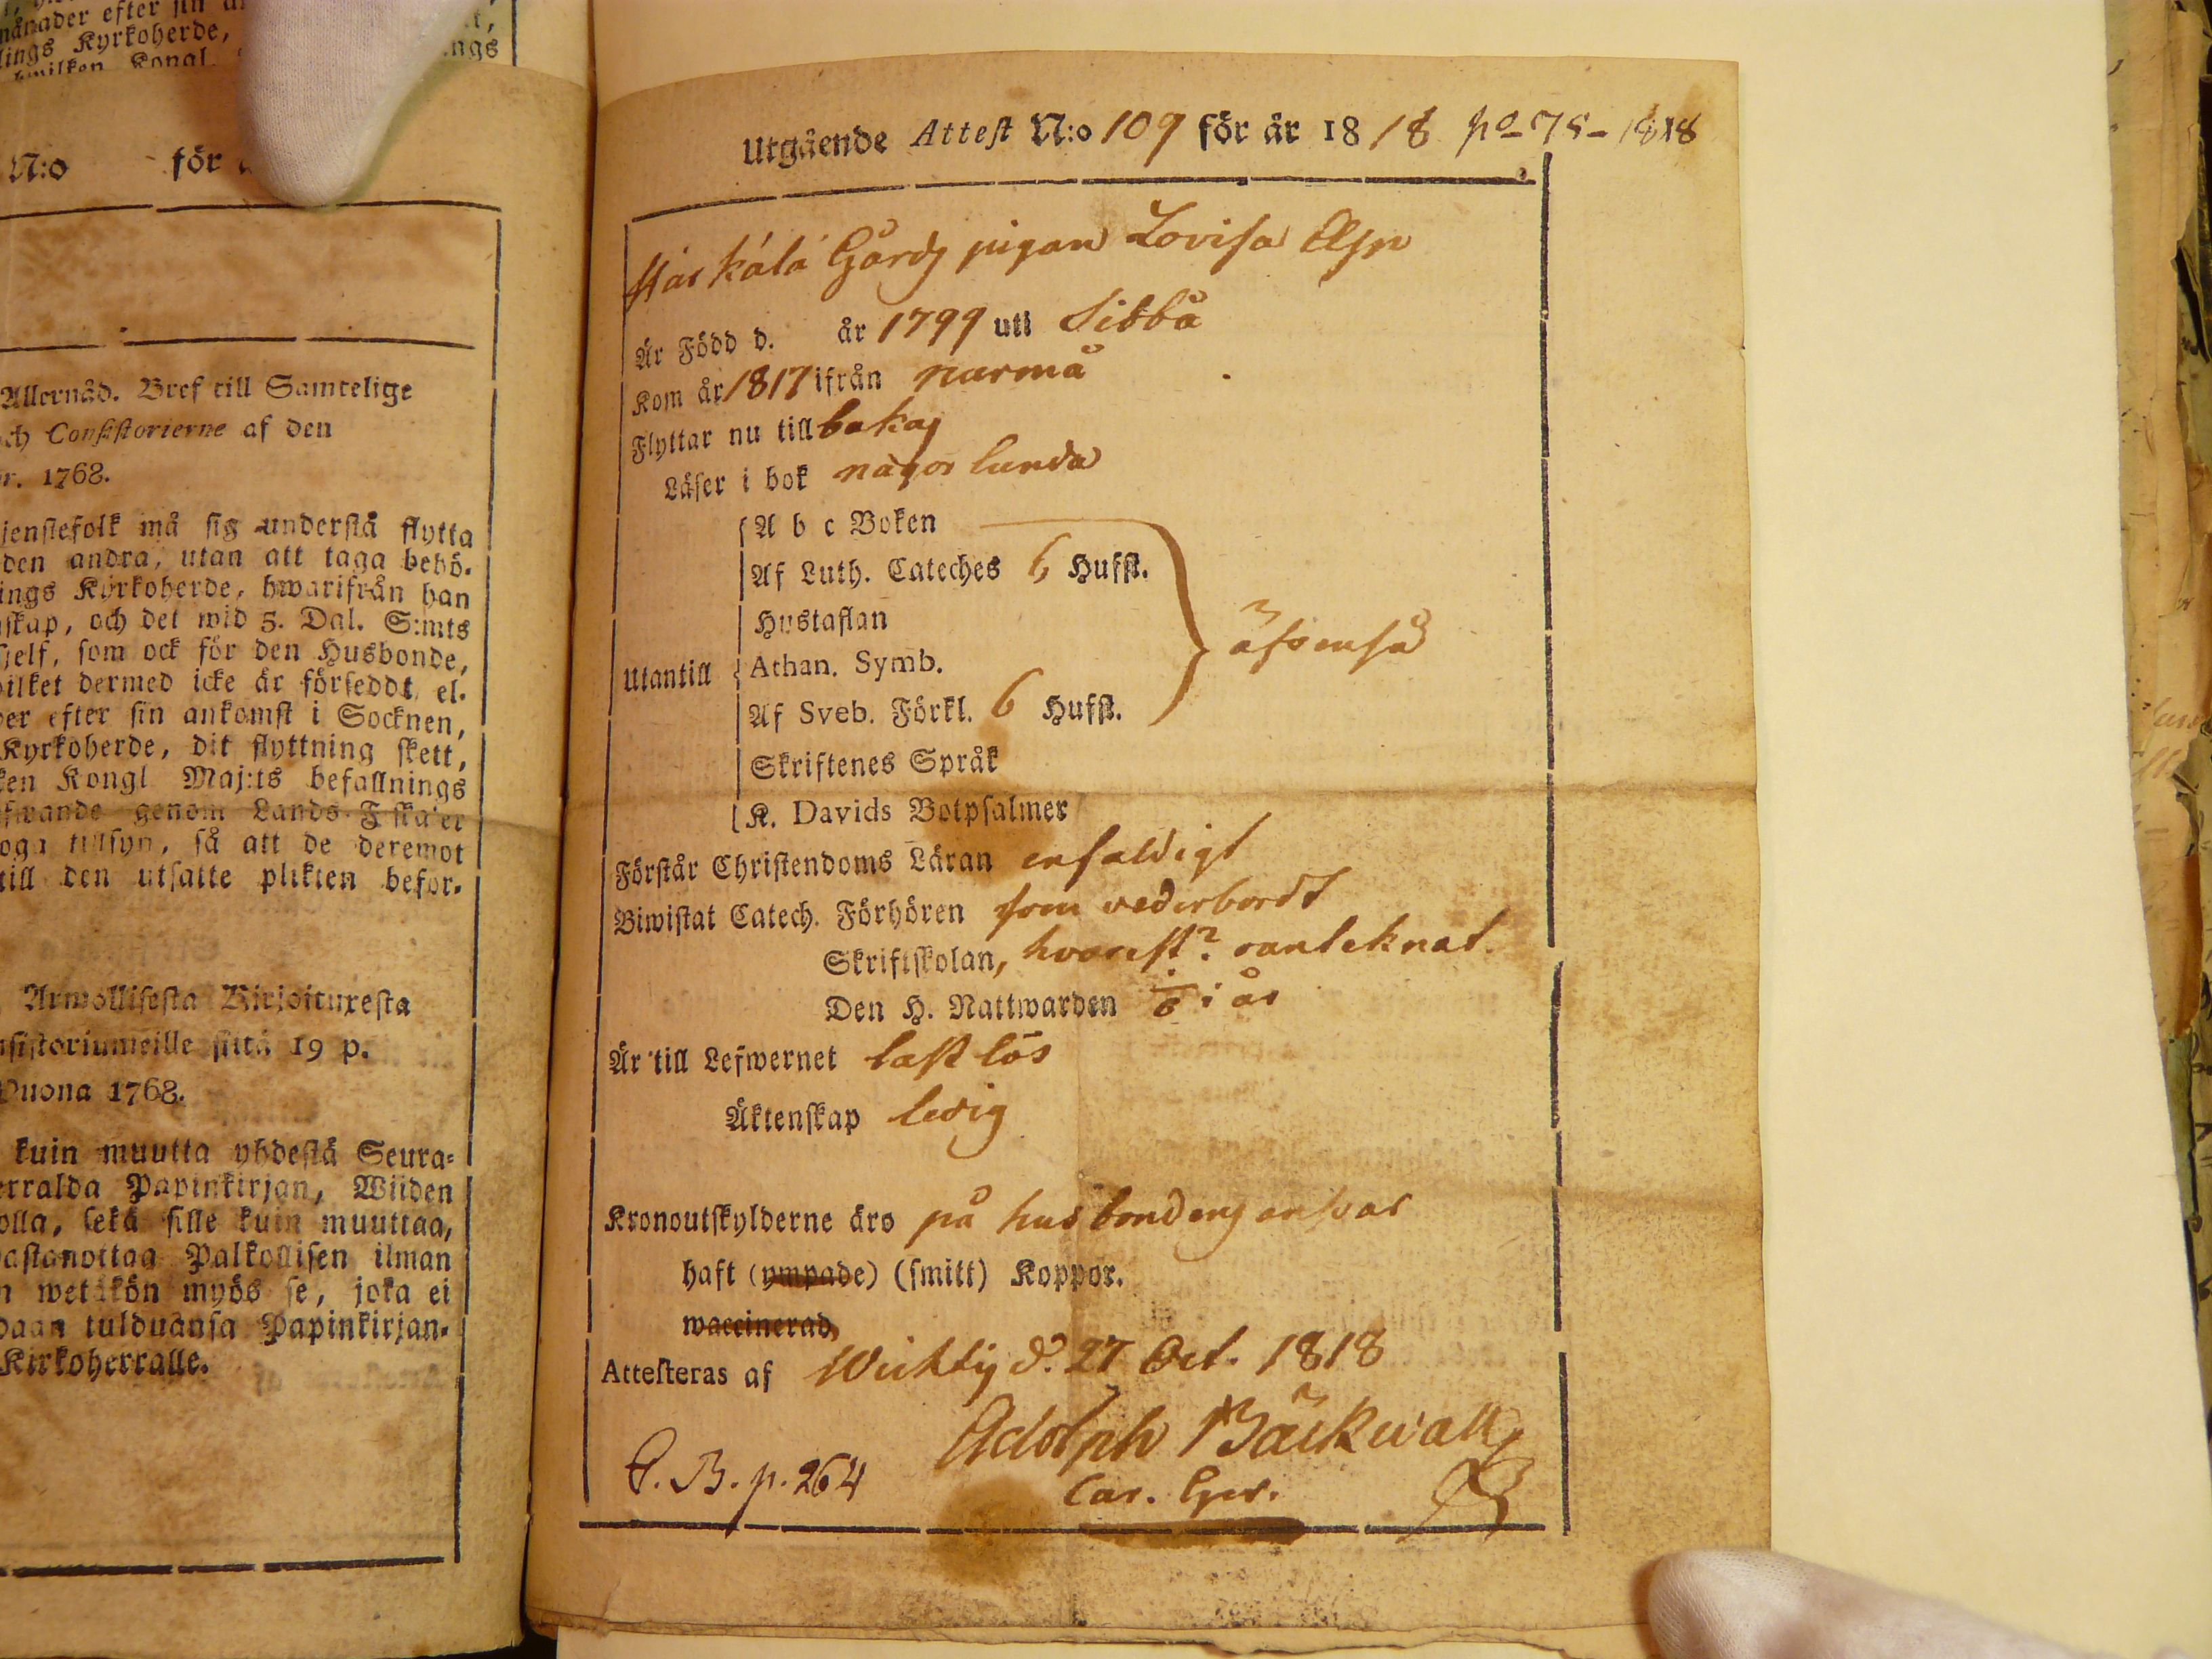 månader efter sin
lings Kyrkoherde,
hwilken Kongl.
ngs
N:o för
Allernåd. Bref till Samtelige
och Consistorierne af den
r. 1768.
jenstefolk må sig understå flytta
den andra, utan att taga behö-
ings Kyrkoherde, hwarifrån han
skap, och det wid 5. Dal. S:mts
sjelf, som ock för den Husbonde,
wilket dermed icke är försedd, el-
er efter sin ankomst i Socknen,
Kyrkoherde, dit flyttning skett,
ken Kongl Maj:ts befallnings
fwande genom Lands-Fiska'er
oga tillsyn, så att de deremot
till den utsatte plikten befor-
Armollisesta Kirjoituxesta
nsistoriumeille siitä 19 p.
Vuona 1768.
kuin muutta yhdestä Seura-
erralda Papinkirjan, Wiiden
olla, sekä sille kuin muuttaa,
astanottaa Palkollisen ilman
n wetäkön myös se, joka ei
daan tulduansa Papinkirjan-
Kirkoherralle.
Utgående Attest N:o 109 för år 1818 pa 75-1818
Gårds pigan Lovisa Asp
Är Född d. år 1799 uti Sibbå
Kom år 1817 ifrån narmå
Flyttar nu till bakaj
Läser i bok någorlunda
Utantill
A b c Boken
Af Luth. Cateches 6 Hufst.
Hustaflan
Athan. Symb.
Af Sveb. Förkl. 6 Hufst.
Skriftenes Språk
K. Davids Botpsalmer
äfvenså
Förstår Christendoms Läran enfaldigt
Biwistat Catech. Förhören som vederbordt
Skriftskolan, hvarest? oanteknat
Den H. Nattwarden i år
Är till Lefwernet lastlös
Äktenskap ledig
Kronoutskylderne äro på husbondens ansvar
haft (ympade) (smitt) Koppor.
waccinerad,
Attesteras af Wichtis d. 27 Oct. 1818
Adolph Bäckwall
C. B. p. 264